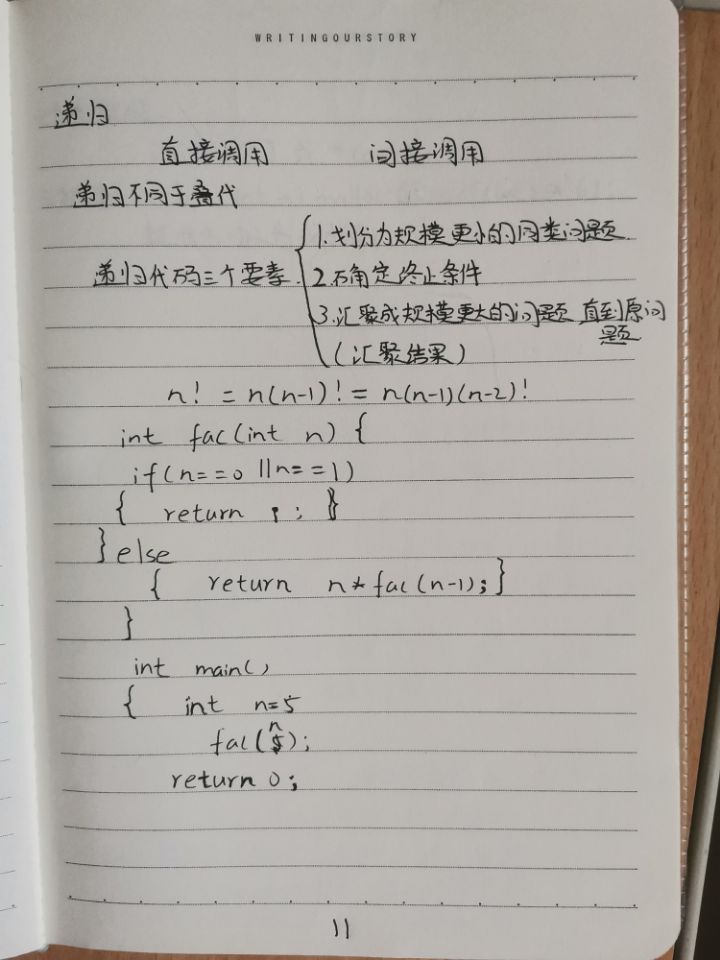 WRITINGOURSTORY
递归
直接调用 间接调用
递归不同于叠代
1.划分为规模更小的同类问题
递归代码三个要素 2.确定终止条件
3.汇聚成规模更大的问题 直到原问
题
(汇聚结果)
n! = n(n-1)! = n(n-1)(n-2)!
int fac(int n) {
if(n==0 ||n==1)
{ return 1; }
}else
{ return n*fac(n-1);}
}
int main()
{ int n=5
fac(n);
return 0;
11